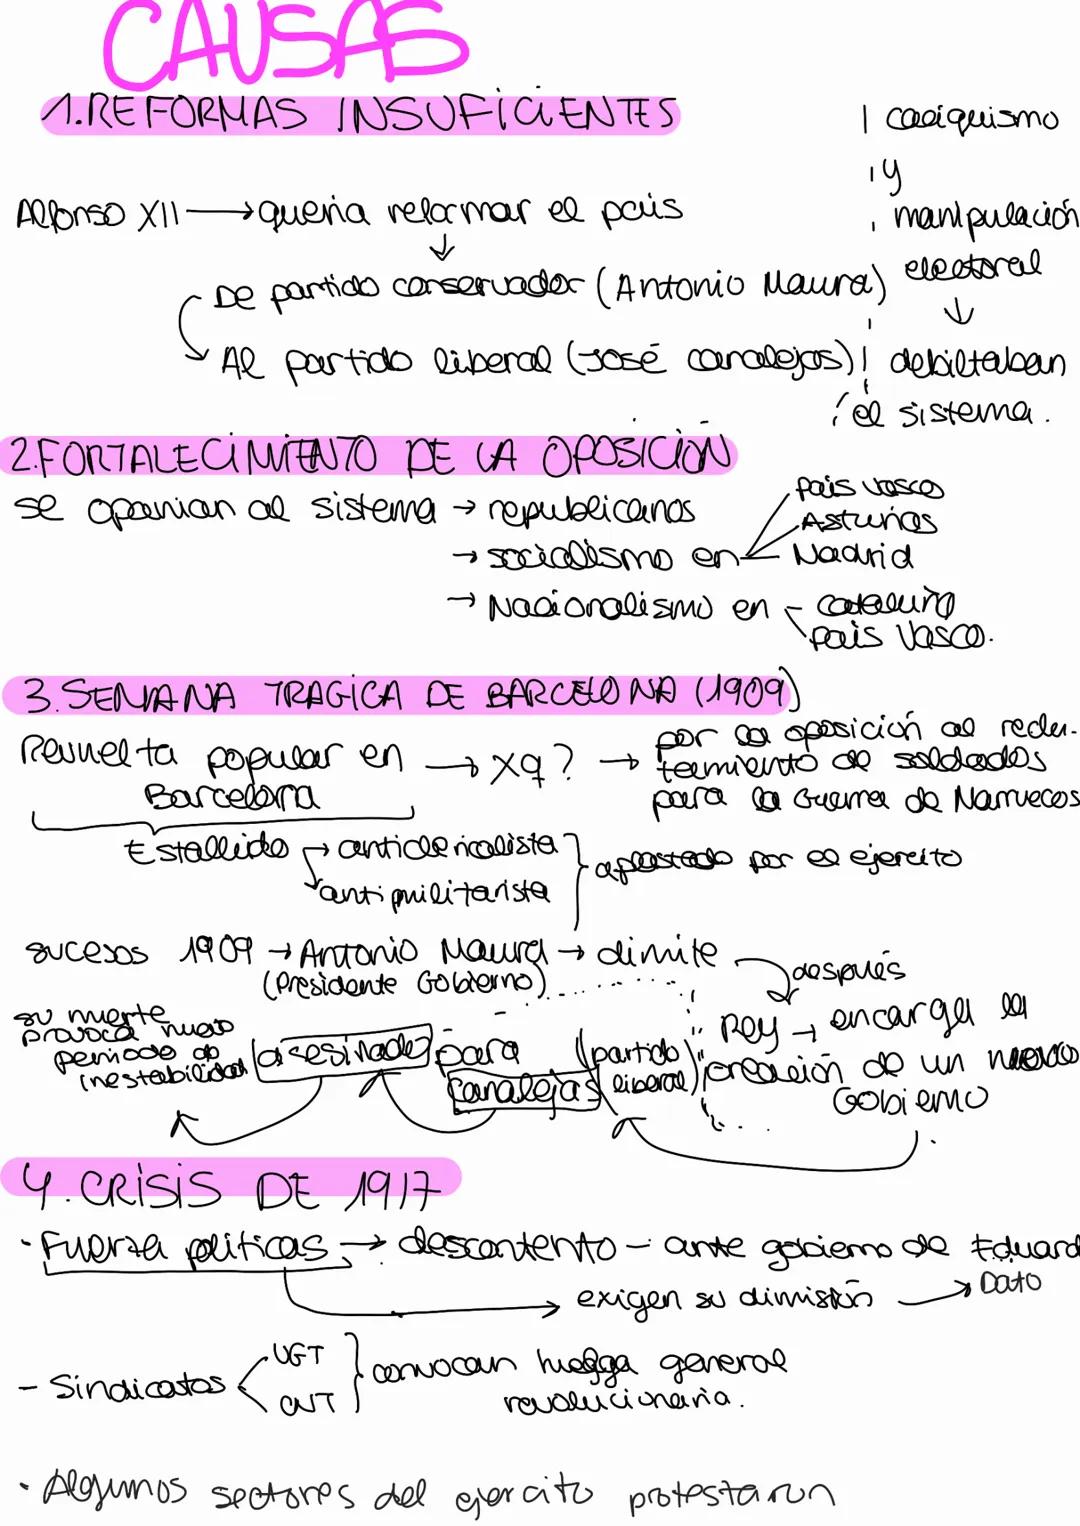 CAUSAS
1.REFORMAS INSUFICIENTES
Alfonso XII → quería reformar el país
↓
De partido conservador (Antonio Maura)
Al partido liberal (José canalejas)
caciquismo
y
manipulación
electoral
↓
debiltaban
el sistema.
2.FORTALECIMIENTO DE LA OPOSICIÓN
se oponian al sistema → republicanos
→ socialismo en
país vasco
Asturias
Madrid
→ Nacionalismo en
cataluña
país Vasco.
3.SEMANA TRAGICA DE BARCELONA (1909)
Revuelta popular en → xq? →
Barcelona
por la oposición al reclu-
tamiento de soldados
para la Guerra de Marruecos
Estallido → anticlericalista
antimilitarista
aplastado por el ejercito
sucesos 1909 → Antonio Maura → dimite
(Presidente Gobierno)
después
Rey → encarga la
creación de un nuevo
Gobierno
(partido
liberal)
para
canalejas
asesinado
su muerte
provoca nuevo
periodo de
inestabilidad
4.CRISIS DE 1917
· Fuerza políticas → descontento – ante gobierno de Eduard
Dato
exigen su dimisión
- Sindicatos
UGT
CNT
convocan huelga general
revolucionaria.
· Algunos sectores del ejercito protestaron